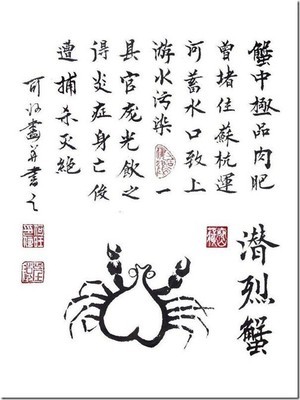 蟹中極品肉肥
曾堵住蘇杭運
河蓄水口致上
游水污染一
县官庞光飲之
得炎症身亡後
遭捕杀灭絕
可好畵并書之
潜烈蟹